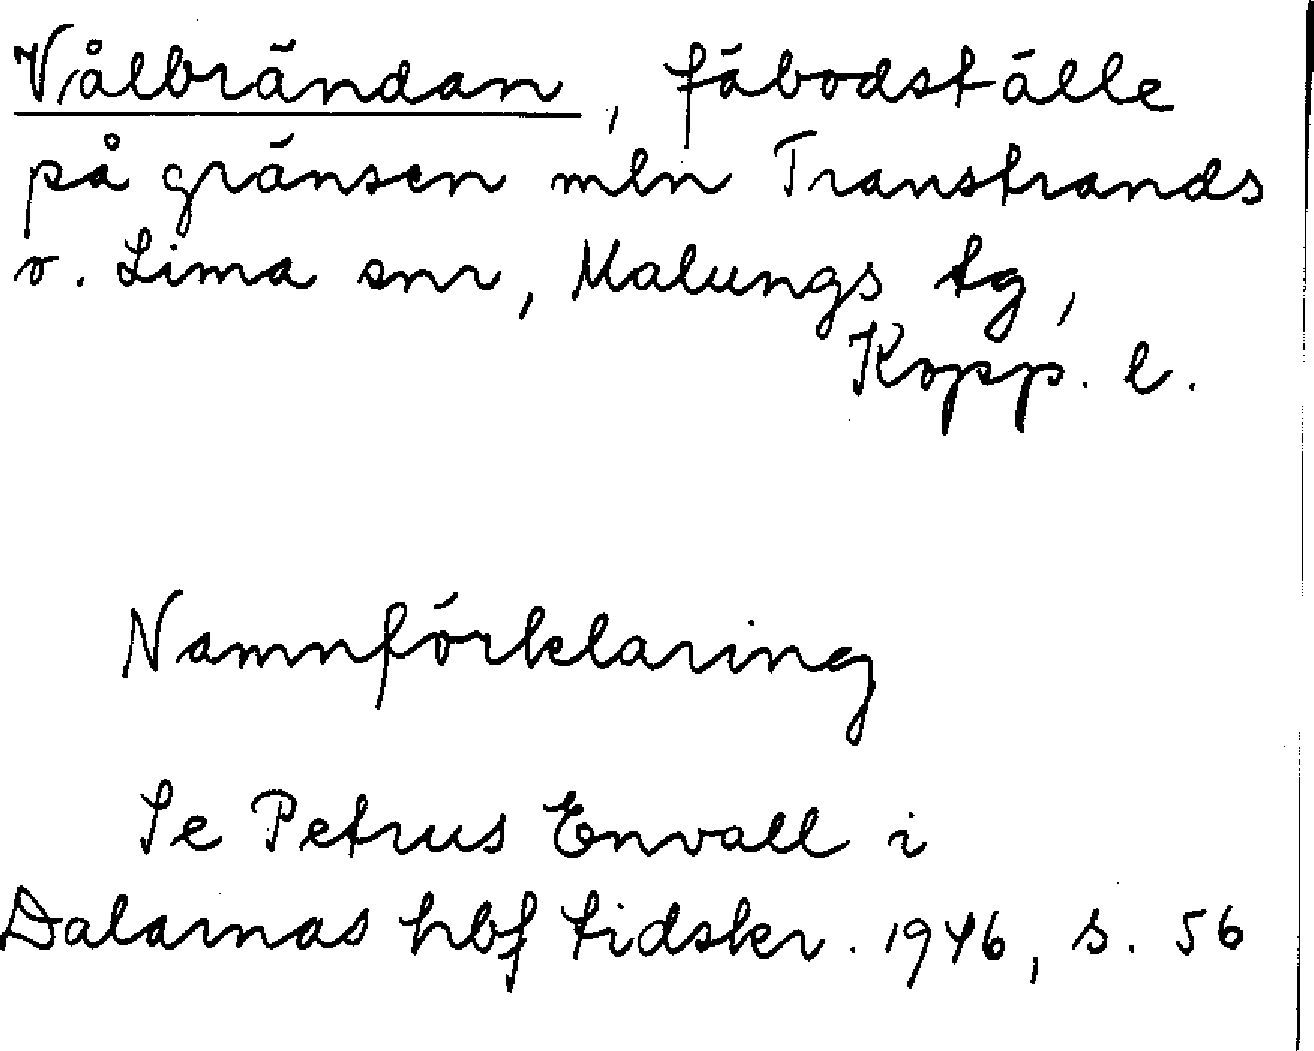 Vålbrändan, fäbodställe
på gränsen mln Transtrands
o. Lima snr, Malungs tg,
Kopp. l.
Namnförklaring
Se Petrus Envall i
Dalarnas hbf tidskr. 1946, s. 56